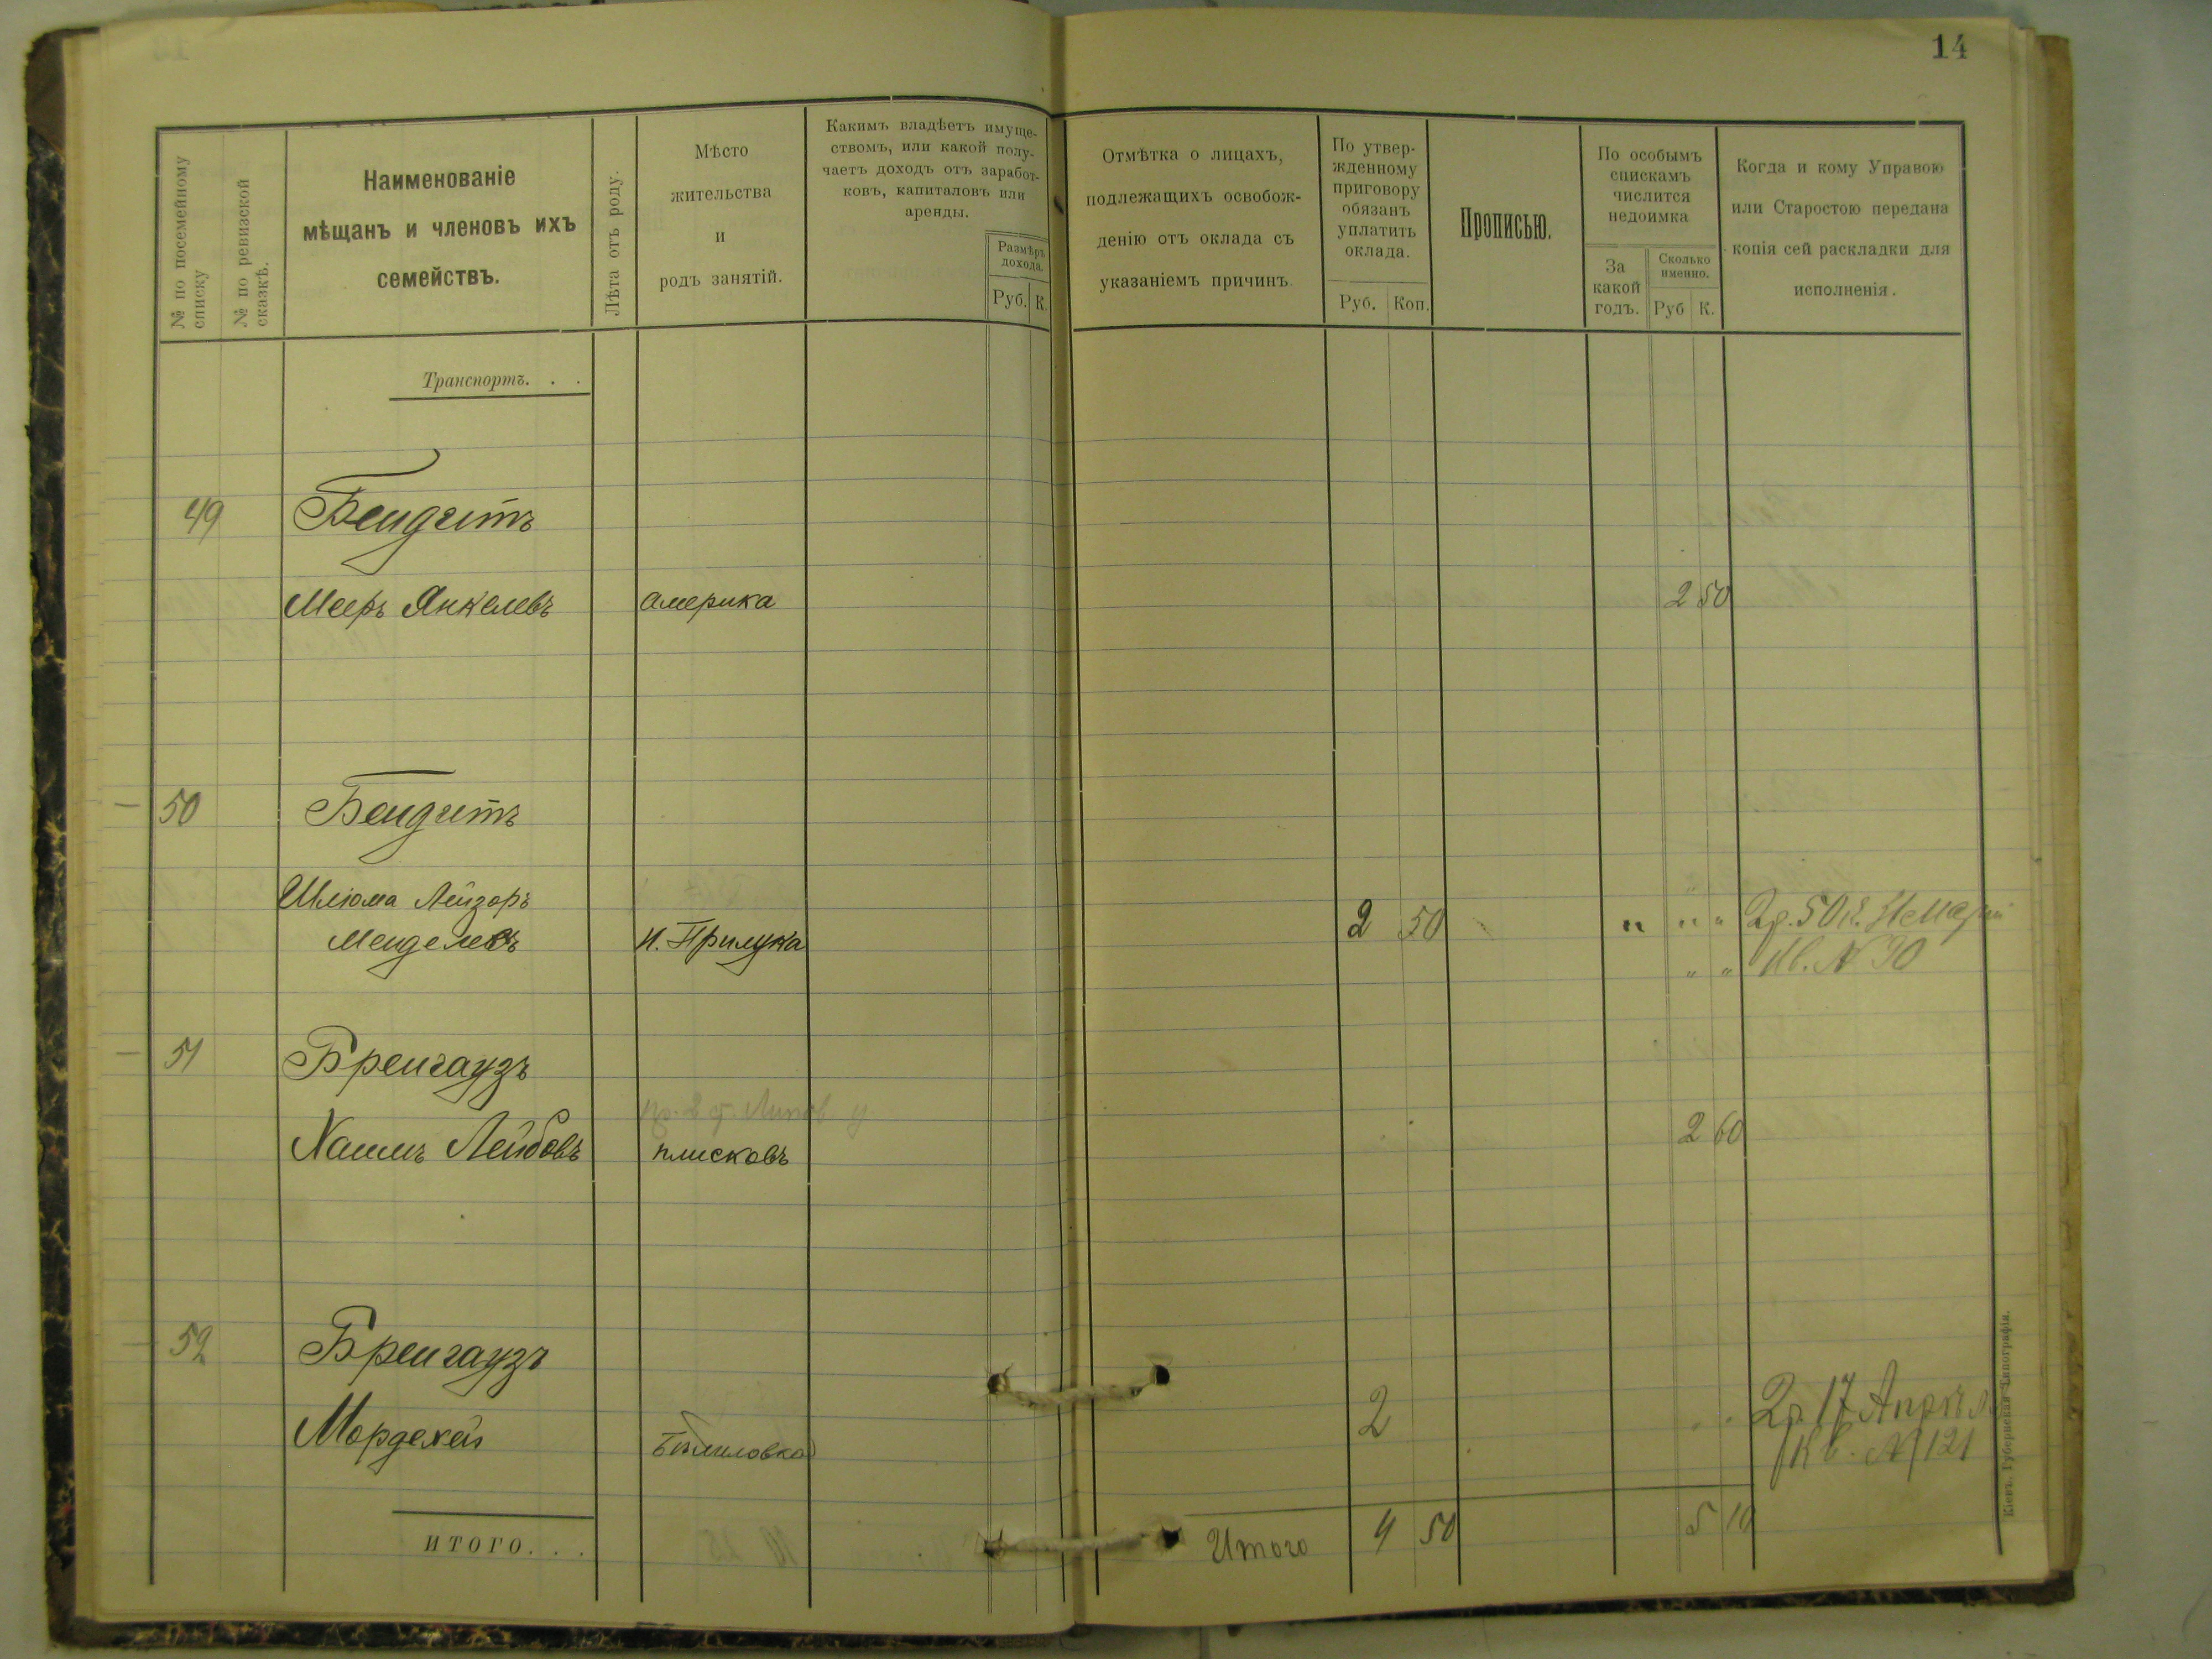 14
№ по посемейному
списку
№ по ревизской
сказкѣ.
Наименованіе
мѣщанъ и членовъ ихъ
семействъ.
Лѣта отъ роду.
Мѣсто
жительства
и
родъ занятій.
Какимъ владѣетъ имуще-
ствомъ, или какой полу-
чаетъ доходъ отъ заработ-
ковъ, капиталовъ или
аренды.
Размѣръ
дохода.
Руб. К.
Отмѣтка о лицахъ,
подлежащихъ освобож-
денію отъ оклада съ
указаніемъ причинъ
По утвер-
жденному
приговору
обязанъ
уплатить
оклада.
Руб. Коп.
Прописью.
По особымъ
спискамъ
числится
недоимка
За
какой
годъ.
Сколько
именно.
Руб К.
Когда и кому Управою
или Старостою передана
копія сей раскладки для
исполненія.
Транспортъ. . .
49 Бендитъ
Мееръ Янкелевъ америка 2 50
50 Бендитъ
Шлюма Лейзоръ
Менделевъ н. Прилука 2 50 " " " 2р. 50к.
" " Кв. № 30
51 Бренгаузъ
Хаимъ Лейбовъ плисковъ 2 60
52 Бренгаузъ
Мордехей Бѣлиловка 2 2р. 17
Кв. № 121
ИТОГО. . .
Итого 4 50 5 10
Кіевъ. Губернская Типографія.